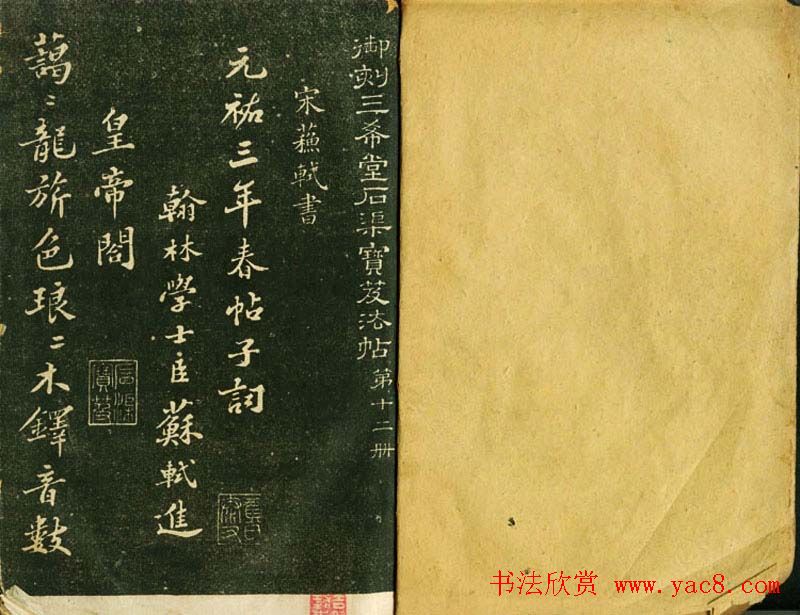 御刻三希堂石渠寶笈法帖 第十二册
宋蘇軾書
元祐三年春帖子詞
翰林學士臣蘇軾進
皇帝閤
藹〻龍旂色琅〻木鐸音數
书法欣赏 www.yac8.com